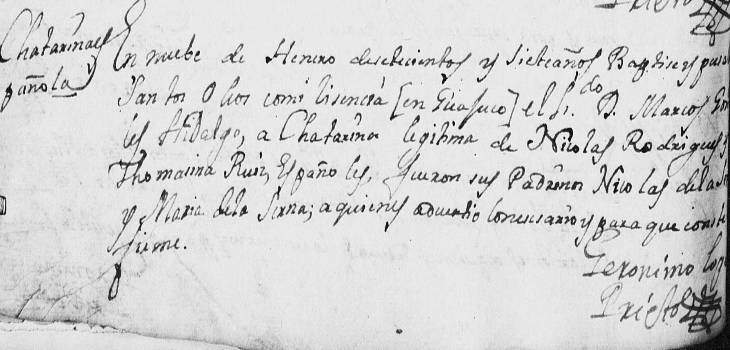 Prieto
Chatarina es
pañola
En nuebe de Henero de setecientos y siete años Baptise y puse
Santos Oleos comi lisencia [en Guasuco] el Sr. Do D. Marcos Gon
les Hidalgo, a Chatarina legitima de Nicolas Rodrigues y
Thomasina Ruiz, Españoles, fueron sus Padrinos Nicolas de la
y Maria de la Serna; a quienes advertio lo nesesario y para que conste
firme.
Geronimo Lope
Prieto